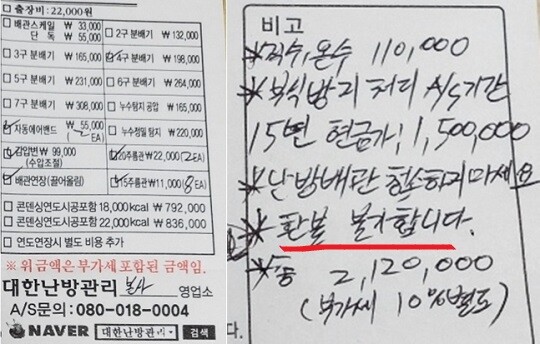 □ 출장비: 22,000원
□ 배관스케일 ₩ 33,000
단 독 ₩ 55,000
□ 2구 분배기 ₩ 132,000
□ 3구 분배기 ₩ 165,000
☑ 4구 분배기 ₩ 198,000
□ 5구 분배기 ₩ 231,000
□ 6구 분배기 ₩ 264,000
□ 7구 분배기 ₩ 308,000
□ 누수탐지 공압 ₩ 165,000
☑ 자동에어밴드 ₩ 55,000
(2EA)
□ 누수정밀 탐지 ₩ 220,000
☑ 감압변 ₩ 99,000
(수압조절)
☑ 20주름관 ₩ 22,000 (2EA)
☑ 배관연장(끌어올림)
☑ 15주름관 ₩ 11,000 (8EA)
□ 콘덴싱연도시공포함 18,000kcal ₩ 792,000
□ 콘덴싱연도시공포함 22,000kcal ₩ 836,000
□ 연도연장시 별도 비용 추가
※ 위 금액은 부가세 포함된 금액임.
대한난방관리 본사 영업소
A/S문의 : 080-018-0004
NAVER 대한난방관리 검색
비고
*직수,온수 110,000
*부식방지 처리 A/S기간
15년 현금가! 1,500,000
*난방배관 청소하지마세요
* 환불 불가합니다.
*총 2,120,000
(부가세 10%별도)
다.